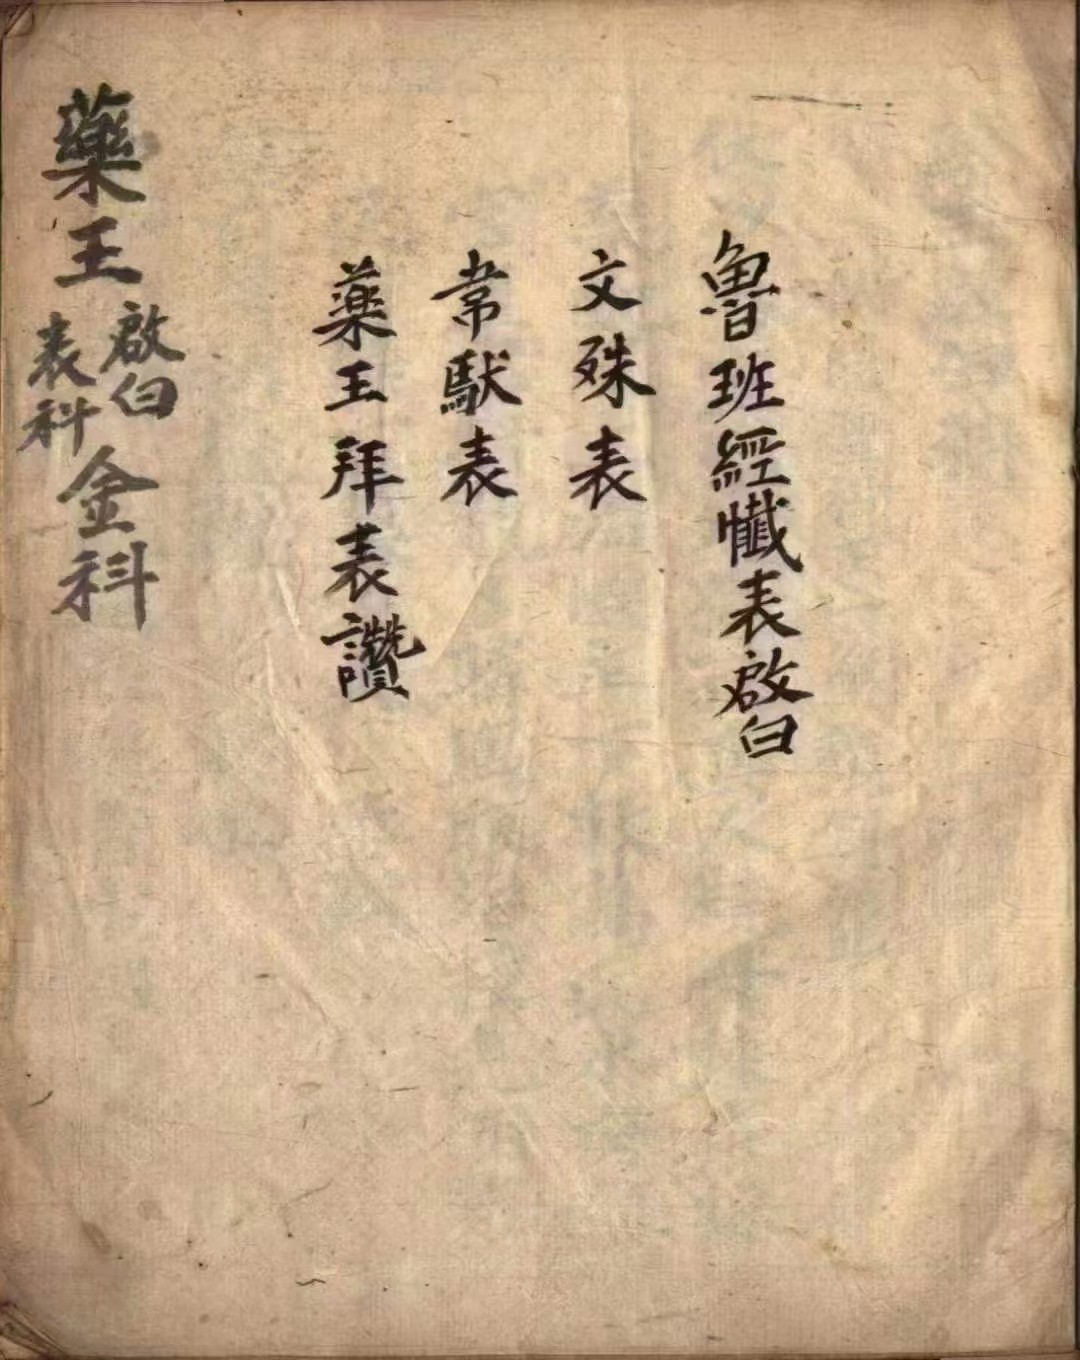 魯班經懺表啟白
文殊表
常馱表
藥王拜表讚
藥王啟白表科金科